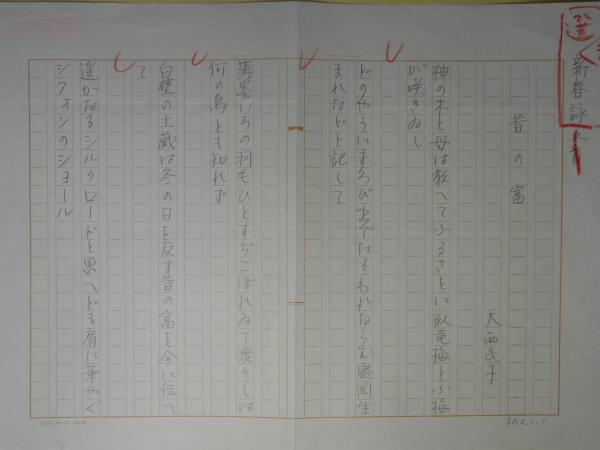 選
新春詠
昔の富
大西民子
神の木と母は教へてふるさとに臥竜梅とふ梅
が咲きゐし
どのやうにまろび出でたるわれならむ盛岡生
まれなどと記して
薄墨いろの羽毛ひとすぢこぼれゐて疲れしは
何の鳥とも知れず
白壁の土蔵は冬の日を反す昔の富を今に伝へ
て
遥かなるシルクロードと思へども肩に華やぐ
シフォンのショール